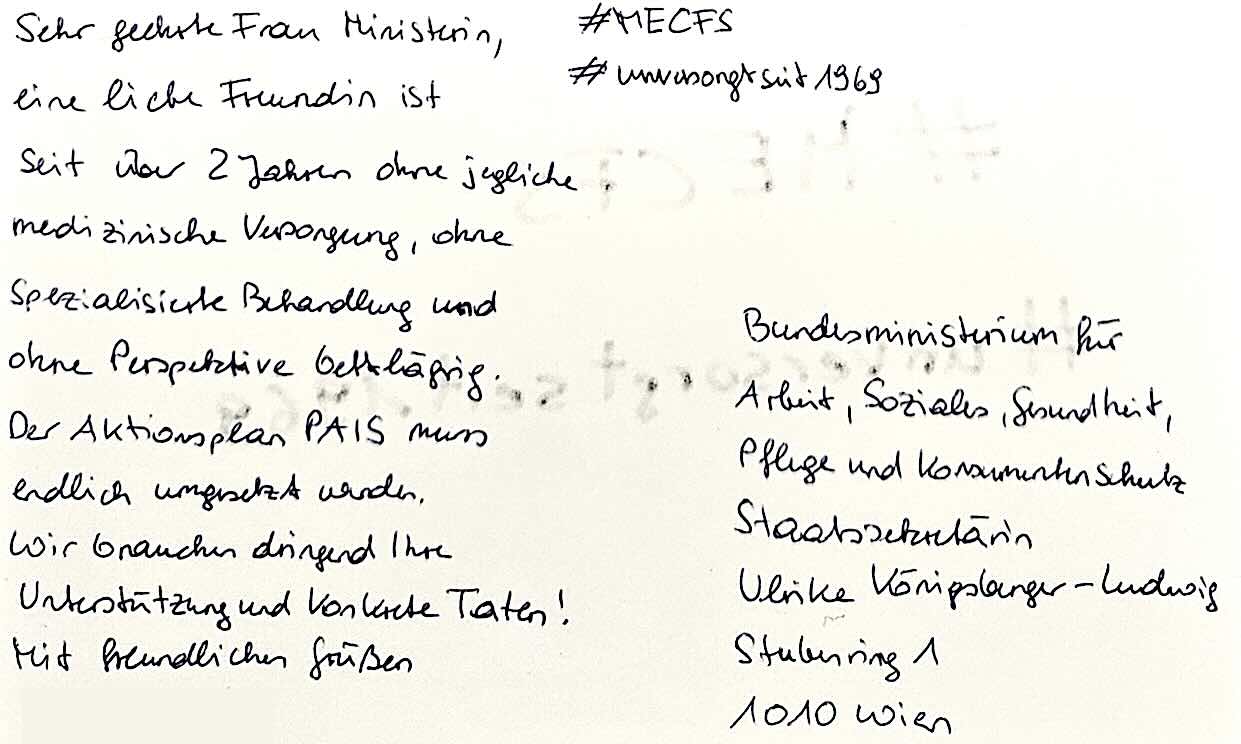 Sehr geehrte Frau Ministerin,
eine liebe Freundin ist
seit über 2 Jahren ohne jegliche
medizinische Versorgung, ohne
Spezialisierte Behandlung und
ohne Perspektive bettlägrig.
Der Aktionsplan PAIS muss
endlich umgesetzt werden.
Wir brauchen dringend Ihre
Unterstützung und konkrete Taten!
Mit freundlichen Grüßen
#MECFS
#unversorgtseit1969
Bundesministerium für
Arbeit, Soziales, Gesundheit,
Pflege und Konsumentenschutz
Staatssekretärin
Ulrike Königsberger-Ludwig
Stubenring 1
1010 Wien
#MECFS
#unversorgtseit1969